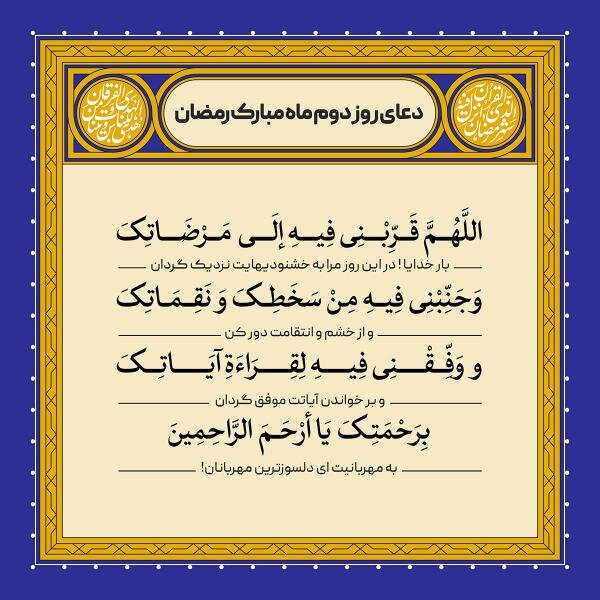 دعای روز دوم ماه مبارک رمضان
اللَّهُمَّ قَرِّبْنِی فِیهِ إِلَی مَرْضَاتِکَ
بار خدایا! در این روز مرا به خشنودیهایت نزدیک گردان
وَجَنِّبْنِی فِیهِ مِنْ سَخَطِکَ وَ نَقِمَاتِکَ
و از خشم و انتقامت دور کن
و وَفِّقْنِی فِیهِ لِقِرَاءَةِ آیَاتِکَ
و بر خواندن آیاتت موفق گردان
بِرَحْمَتِکَ یَا أَرْحَمَ الرَّاحِمِینَ
به مهربانیت ای دلسوزترین مهربانان!